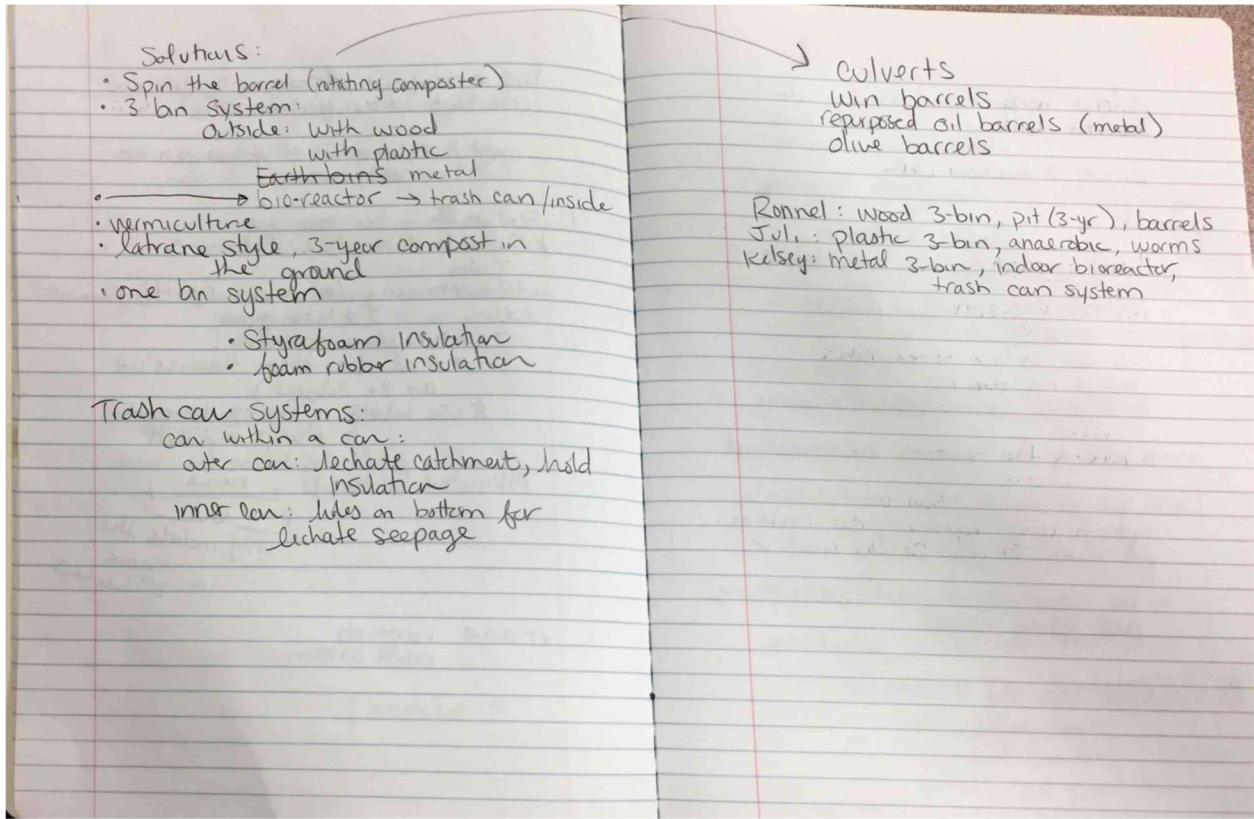 Solutions:
• Spin the barrel (rotating composter)
• 3 bin system:
outside: with wood
with plastic
Earth bins metal
• → bio-reactor → trash can/inside
• vermiculture
• latrane style, 3-year compost in
the ground
• one bin system
• Styrafoam insulation
• foam rubber insulation
Trash can systems:
can within a can:
outer can: lechate catchment, hold
insulation
inner can: holes on bottom for
lechate seepage
culverts
win barrels
repurposed oil barrels (metal)
olive barrels
Ronnel: wood 3-bin, pit (3-yr), barrels
Juli: plastic 3-bin, anaerobic, worms
Kelsey: metal 3-bin, indoor bioreactor,
trash can system